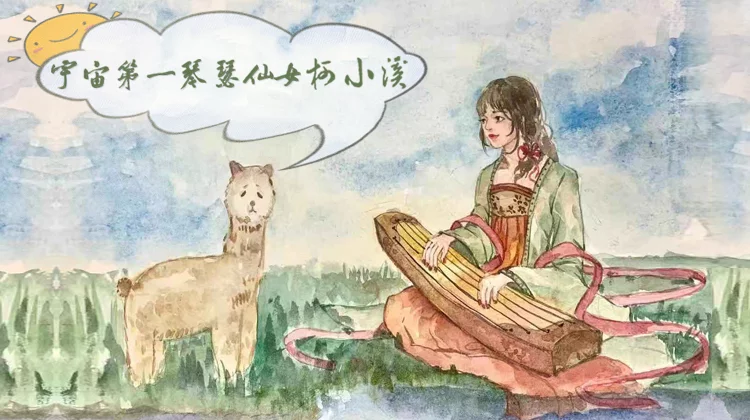 宇宙第一琴瑟仙女柯小溪